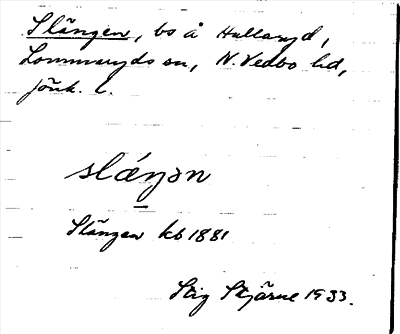 Slängen, bs å Hullaryd,
Lommaryds sn, N. Vedbo hd,
jönk. l.
slæ´ŋən
Slängen kb 1881
Stig Stjärne 1933.